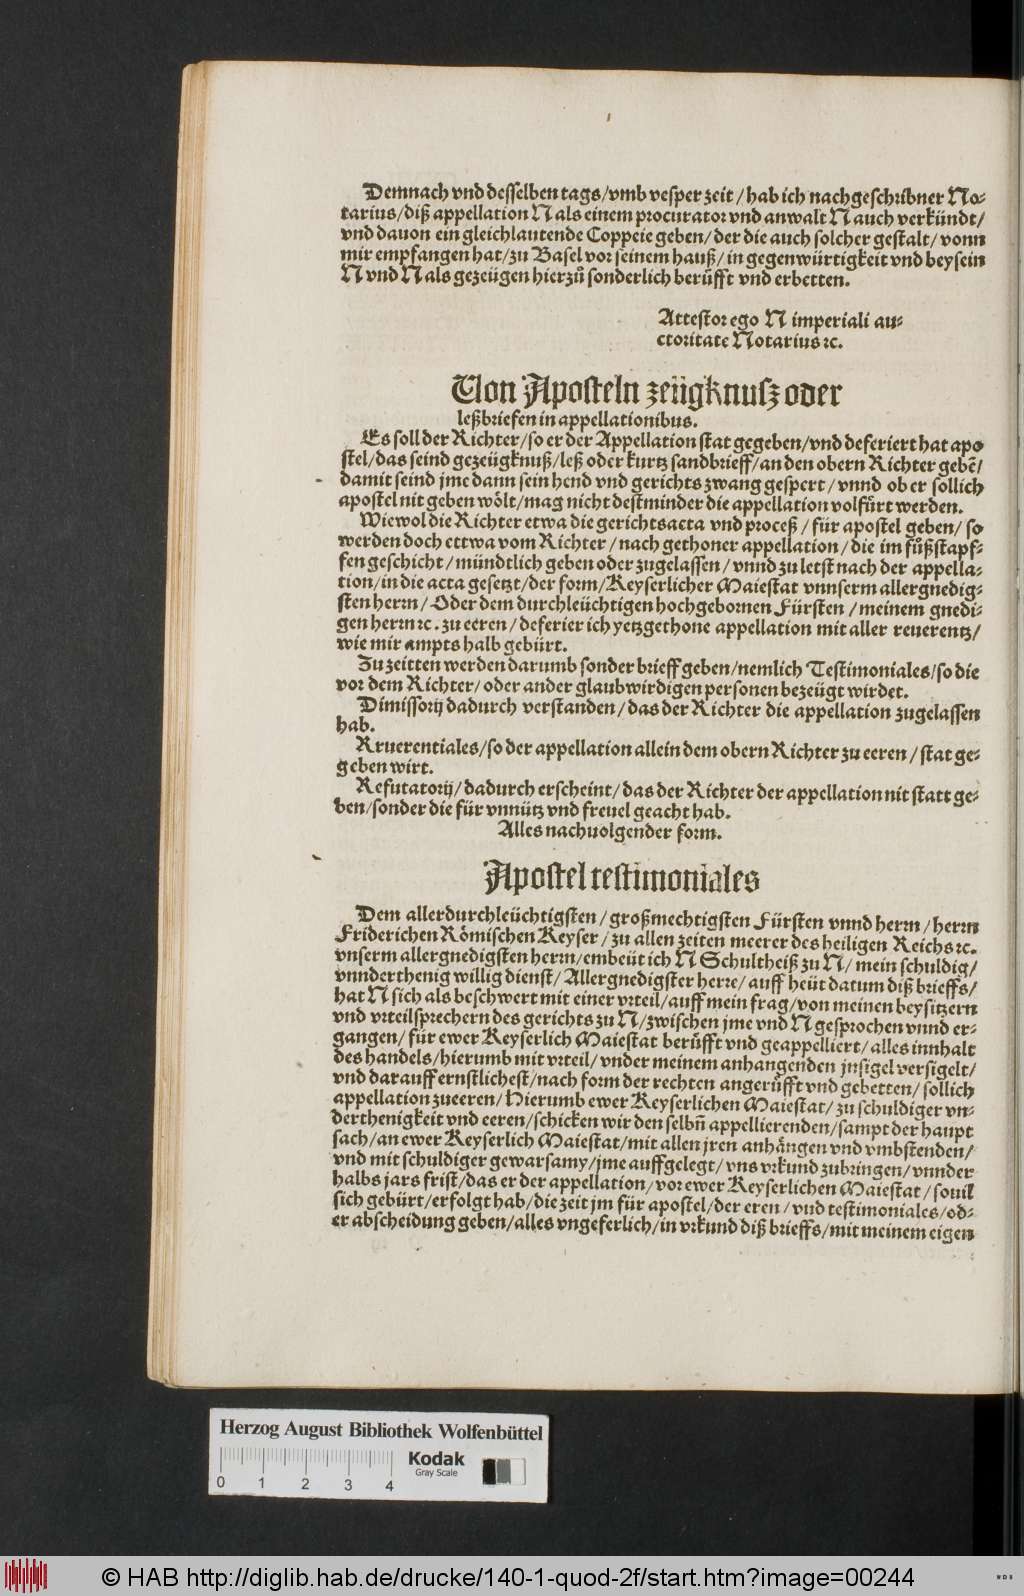 Demnach vnd desselben tags/vmb vesper zeit/hab ich nachgeschribner No-
tarius/diß appellation N als einem procurator vnd anwalt N auch verkündt/
vnd dauon ein gleichlautende Coppeie geben/der die auch solcher gestalt/vonn
mir empfangen hat/zu Basel vor seinem hauß/in gegenwürtigkeit vnd beysein
N vnd N als gezeügen hierzů sonderlich berůfft vnd erbetten.
Attestor ego N imperiali au-
ctoritate Notarius ꝛc.
Von Aposteln zeügknusz oder
leßbriefen in appellationibus.
Es soll der Richter/so er der Appellation stat gegeben/vnd deferiert hat apo
stel/das seind gezeügknuß/leß oder kurtz sandbrieff/an den obern Richter gebẽ/
damit seind jme dann sein hend vnd gerichts zwang gespert/vnnd ob er sollich
apostel nit geben wölt/mag nicht destminder die appellation volfürt werden.
Wiewol die Richter etwa die gerichtsacta vnd proceß/für apostel geben/so
werden doch ettwa vom Richter/nach gethoner appellation/die im fůßstapf-
fen geschicht/mündtlich geben oder zugelassen/vnnd zu letst nach der appella-
tion/in die acta gesetzt/der form/Keyserlicher Maiestat vnnserm allergnedig-
sten herrn/Oder dem durchleüchtigen hochgebornen Fürsten/meinem gnedi-
gen herrn ꝛc. zu eeren/deferier ich yetzgethone appellation mit aller reuerentz/
wie mir ampts halb gebürt.
Zu zeitten werden darumb sonder brieff geben/nemlich Testimoniales/so die
vor dem Richter/oder ander glaubwirdigen personen bezeügt wirdet.
Dimissorij dadurch verstanden/das der Richter die appellation zugelassen
hab.
Rruerentiales/so der appellation allein dem obern Richter zu eeren/stat ge-
geben wirt.
Refutatorij/dadurch erscheint/das der Richter der appellation nit statt ge-
ben/sonder die für vnnütz vnd freuel geacht hab.
Alles nachuolgender form.
Apostel testimoniales
Dem allerdurchleüchtigsten/großmechtigsten Fürsten vnnd herrn/herrn
Friderichen Römischen Keyser/zu allen zeiten meerer des heiligen Reichs ꝛc.
vnserm allergnedigsten herrn/embeüt ich N Schultheiß zu N/mein schuldig/
vnnderthenig willig dienst/Allergnedigster herre/auff heüt datum diß brieffs/
hat N sich als beschwert mit einer vrteil/auff mein frag/von meinen beysitzern
vnd vrteilsprechern des gerichts zu N/zwischen jme vnd N gesprochen vnnd er-
gangen/für ewer Keyserlich Maiestat berůfft vnd geappelliert/alles innhalt
des handels/hierumb mit vrteil/vnder meinem anhangenden jnsigel versigelt/
vnd darauff ernstlichest/nach form der rechten angerůfft vnd gebetten/sollich
appellation zueeren/Hierumb ewer Keyserlichen Maiestat/zu schuldiger vn-
derthenigkeit vnd eeren/schicken wir den selbñ appellierenden/sampt der haupt
sach/an ewer Keyserlich Maiestat/mit allen jren anhängen vnd vmbstenden/
vnd mit schuldiger gewarsamy/jme auffgelegt/vns vrkund zubringen/vnnder
halbs jars frist/das er der appellation/vor ewer Keyserlichen Maiestat/souil
sich gebürt/erfolgt hab/die zeit jm für apostel/der eren/vnd testimoniales/od-
er abscheidung geben/alles vngeferlich/in vrkund diß brieffs/mit meinem eigen
Herzog August Bibliothek Wolfenbüttel
Kodak
Gray Scale
0 1 2 3 4
© HAB http://diglib.hab.de/drucke/140-1-quod-2f/start.htm?image=00244